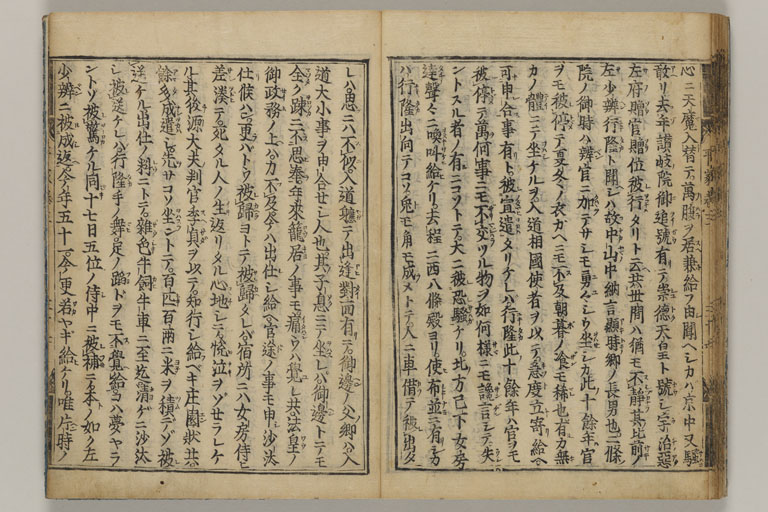 心ニ天魔入替テ萬腹ヲ居兼給フ由聞ヘシカハ京中又騒
敢リ去年讃岐院御追號有テ崇德天皇ト號シ宇治惡
左府贈官贈位被行タリト云共世間ハ猶モ不靜其比前ノ
左少辨行隆ト聞シハ故中山中納言顯時卿ノ長男也二條
院ノ御時ハ辨官ニ加テサシモ勇々シウ坐シカ此十餘年官
ヲモ被停テ夏冬ノ衣ガヘニモ不及朝暮ノ食モ稀也有カ無
カノ體ニテ坐ケルヲ入道相國使者ヲ以テ急度立寄給ヘ
可申合事有ト被宣遣タリケレハ行隆此十餘年ハ官ヲモ
被停テ萬何事ニモ不交ツル物ヲ如何樣ニモ讒言シテ失
ントスル者ノ有ニコソトテ大ニ被恐騒ケリ北方已下女房
達聲々ニ喚叫給ケリ去程ニ西八條殿ヨリ使布並ニ有シカ
ハ行隆出向テコソ兔モ角モ成メトテ人ニ車借テ被出タ
レハ思ニハ不似入道軈テ出逢對面有テ御邊ノ父卿ハ入
道大小事ヲ申合セシ人也其ノ子息ニテ坐レバ御邊トテモ
全ク踈ニ不思奉年來籠居ノ事モ痛ウハ覺レ共法皇ノ
御政務ノ上ハ力不及今ハ出仕シ給ヘ官途ノ事モ申沙汰
仕候ハン更ハトウ被歸ヨトテ被歸タレバ宿所ニハ女房侍ヒ
差湊テ死タル人ノ生返リタル心地シテ悅泣ヲゾセラレケ
ル其後源大夫判官季貞ヲ以テ知行シ給ベキ庄園狀共
餘多成遣シ先サコソ坐ントテ百匹百兩ニ米ヲ積テゾ被
送ケル出仕ノ料ニトテ雜色牛飼牛車ニ至迄淸ゲニ沙汰
シ被送ケレハ行隆手ノ舞足ノ蹈トヲモ不覺給コハ夢ヤラ
ントゾ被驚ケル同十七日五位ノ侍中ニ被補テ本ノ如ク左
少辨ニ被成返今年五十一今更若ヤギ給ケリ唯片時ノ